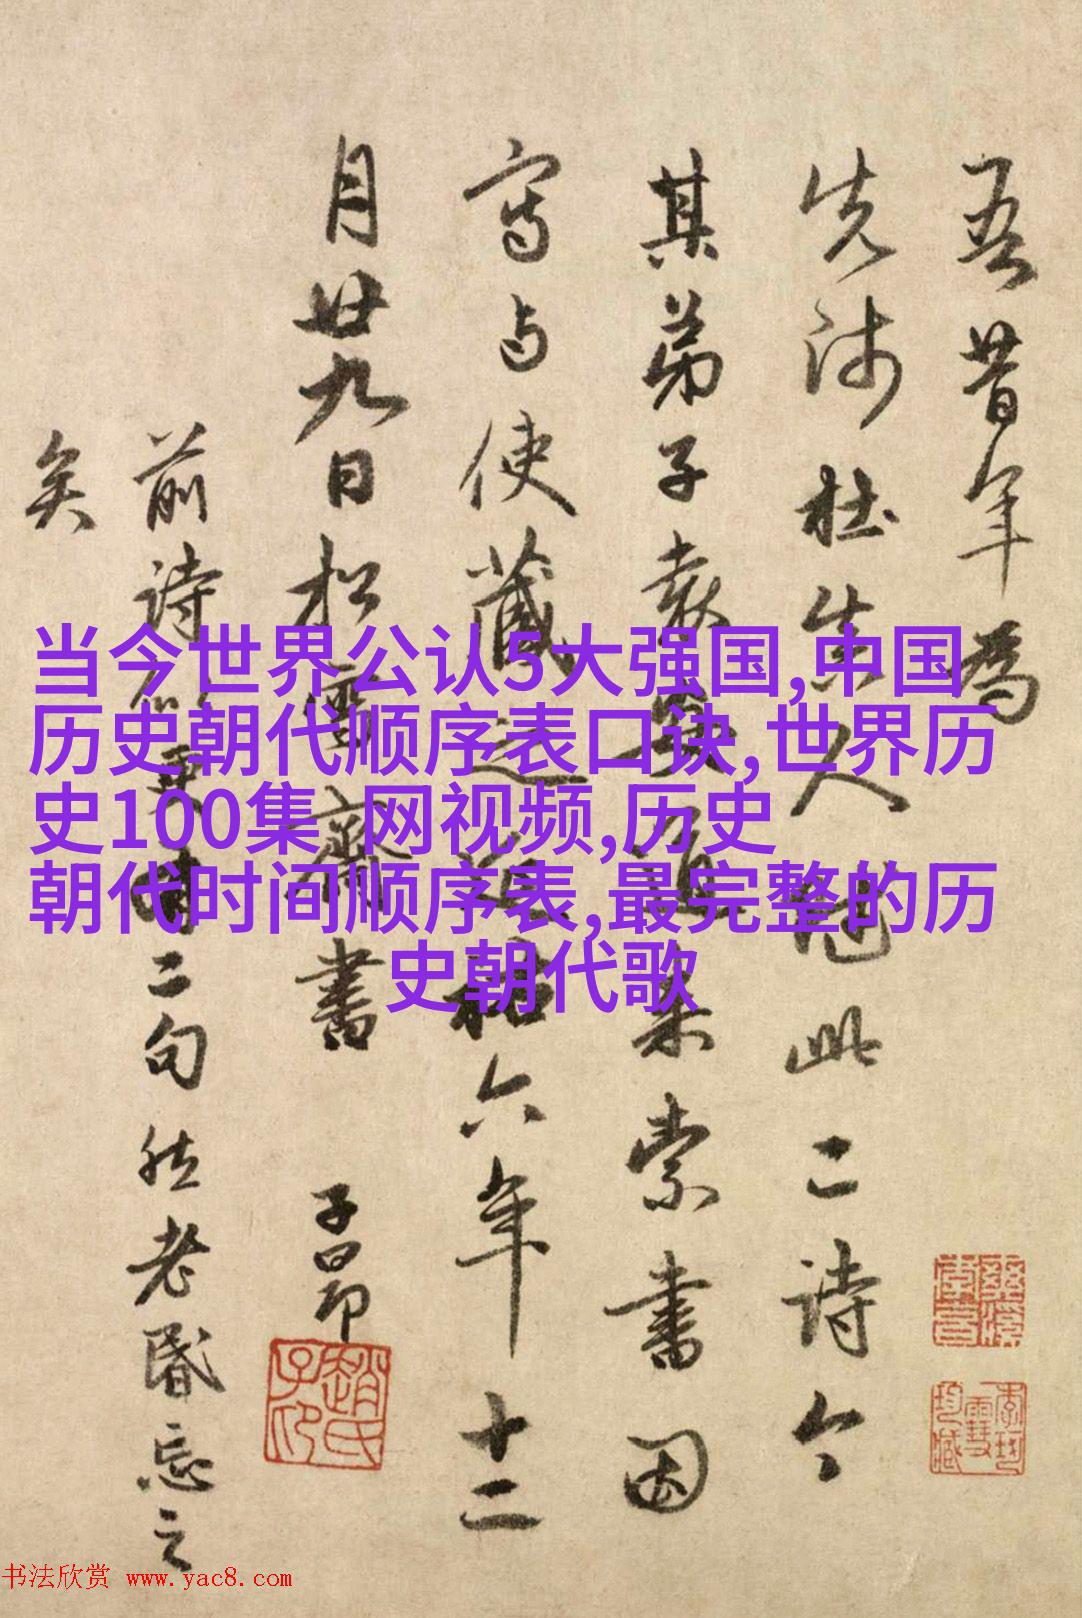 吾昔年為
先师杜人此二诗今
其弟子来索書因
寫与使藏延祐六年十二
月廿九日松雪齋書 子昂
前詩二句然老昏忘之
矣
当今世界公认5大强国,中国
历史朝代顺序表口诀,世界历
史100集 网视频,历史
朝代时间顺序表,最完整的历
史朝代歌
趙氏子印
书法欣赏 www.yac8.com